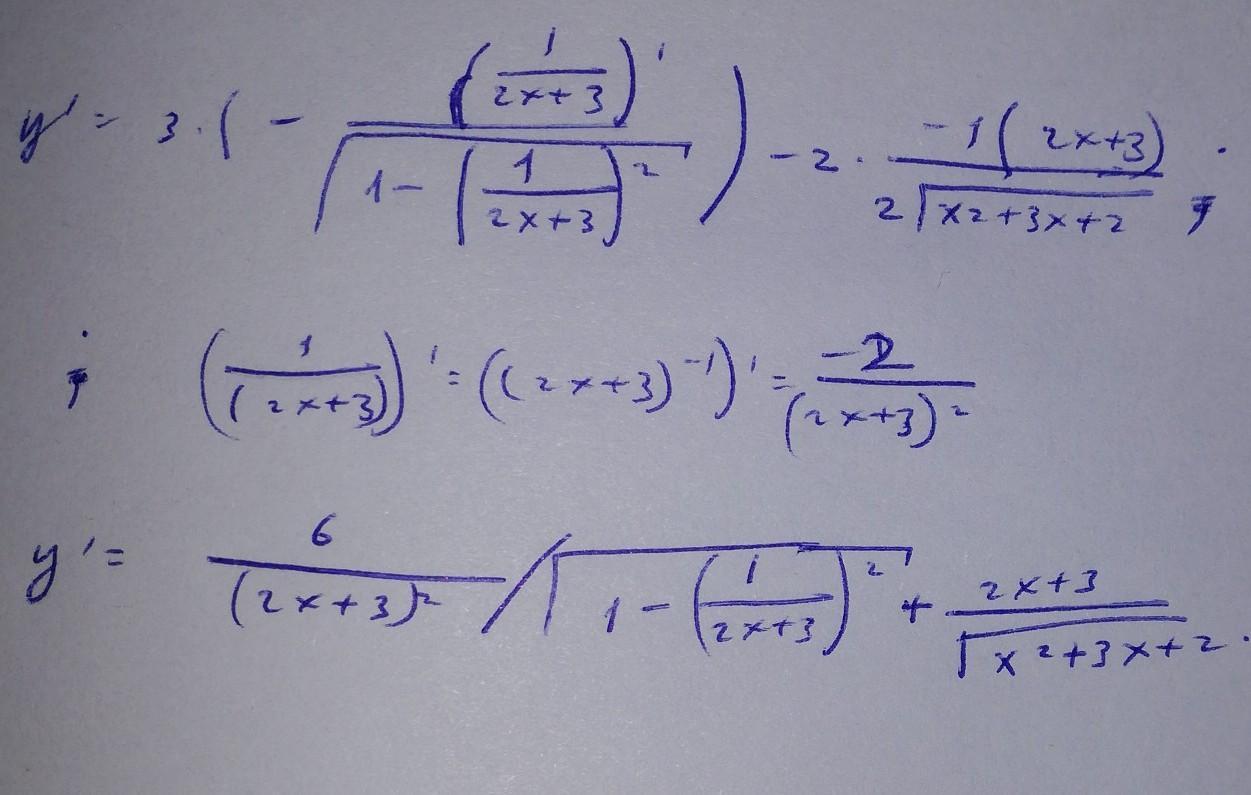 y' = 3 · ( - (1/(2x+3))' / √(1 - (1/(2x+3))²) ) - 2 · (-1(2x+3)) / (2√(x2+3x+2)) ;
; (1/(2x+3))' = ((2x+3)⁻¹)' = -2/(2x+3)²
y' = 6/(2x+3)² / √(1 - (1/(2x+3))²) + (2x+3)/√(x²+3x+2) .